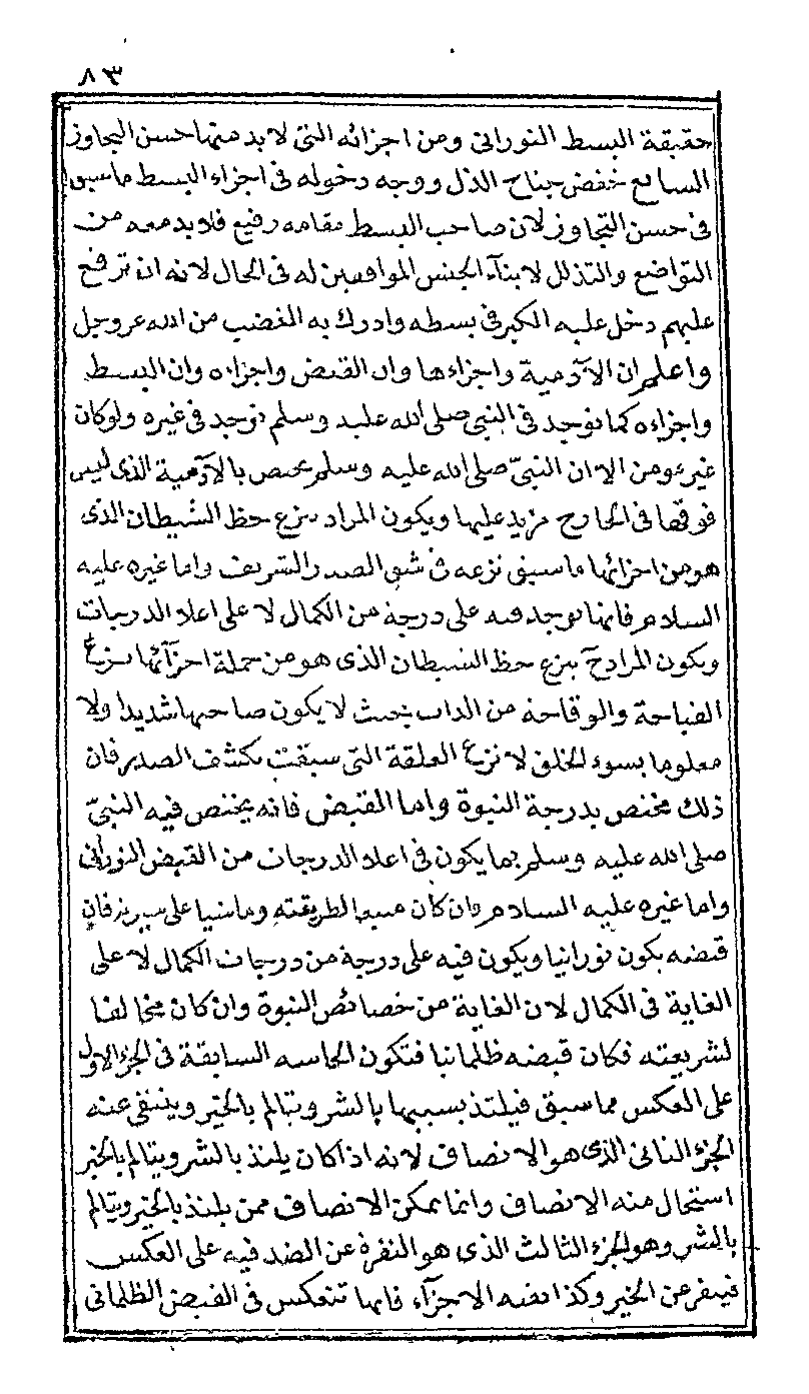 ٨٣
حقيقة البسط النورانى ومن اجزائه التى لا بد منها حسن التجاوز
السابع خفض جناح الذل ووجه دخوله فى اجزاء البسط ما سبق
فى حسن التجاوز لان صاحب البسط مقامه رفيع فلا بد معه من
التواضع والتذلل لابناء الجنس الموافقين له فى الحال لانه ان ترفع
عليهم دخل عليه الكبر فى بسطه وادرك به الغضب من الله عز وجل
واعلم ان الآدمية واجزاءها وان القبض واجزاءه وان البسط
واجزاءه كما توجد فى النبى صلى الله عليه وسلم توجد فى غيره ولو كان
غير مومن الا ان النبىّ صلى الله عليه وسلم مختص بالآدمية الذى ليس
فوقها فى الخارج مزيد عليها ويكون المراد بنزع حظ الشيطان الذى
هو من اجزائها ما سبق نزعه فى شق الصدر الشريف واما غيره عليه
السلام فانها توجد فيه على درجة من الكمال لا على اعلا الدرجات
ويكون المراد ح بنزع حظ الشيطان الذى هو من جملة اجزآئها نزع
القباحة والوقاحة من الذات بحيث لا يكون صاحبها شديدا ولا
معلوما بسوء الخلق لا نزع العلقة التى سبقت بكشف الصدر فان
ذلك مختص بدرجة النبوة واما القبض فانه يختص فيه النبىّ
صلى الله عليه وسلم بما يكون فى اعلا الدرجات من القبض النورانى
واما غيره عليه السلام فان كان متبعا لطريقته وماشيا على سيرته فان
قبضه يكون نورانيا ويكون فيه على درجة من درجات الكمال لا على
الغاية فى الكمال لان الغاية من خصائص النبوة وان كان مخالفا
لشريعته فكان قبضه ظلمانيا فتكون الحاسه السابقة فى الجزء الاول
على العكس مما سبق فيلتذ بسببها بالشر ويتالم بالخير وينتفى عنه
الجزء الثانى الذى هو الانصاف لانه اذا كان يلتذ بالشر ويتالم بالخير
استحال منه الانصاف وانما يمكن الانصاف ممن يلتذ بالخير ويتالم
بالشر وهو الجزء الثالث الذى هو النفرة عن الضد فيه على العكس
فينفر عن الخير وكذا بقية الاجزآء فانها تنعكس فى القبض الظلمانى